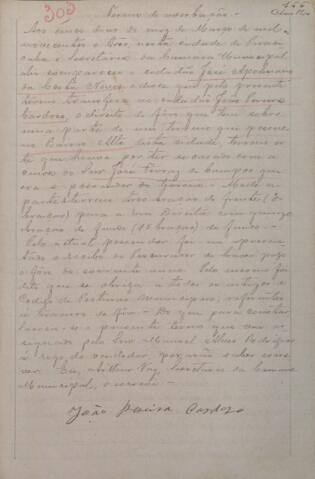 303
Termo de
Aos onze dias do mez de Março de mil
novecentos e tres, nesta cidade de Piraci
caba e Secretaria da Camara Municipal,
ahi compareceu o cidadão José Apolinario
da Costa Neves e disse que pelo presente
termo transferia ao cidadão João Pereira
Cardoso, o direito de fôro que tem sobre
uma parte de um terreno que possue
no Bairro Alto desta cidade, terreno es
te que houve por ter se casado com a
viuva de José Ferraz de Campos que
era o possuidor do terreno. Mede a
parte terreno tres braças de frente (3
braças) para a rua Direita com quinze
braças de fundo (15 braças) de fundo.
Pelo actual possuidor foi me apresen
tado o recibo do Procurador de haver pago
o fôro do corrente anno. Pelo mesmo foi
dito que se obriga a todos os artigos do
Codigo de Posturas Municipaes, referentes
a terrenos de fôro. Do que para constar
lavrou-se o presente termo que vai as
signado pelo Snr. Manoel Alves Rodrigues
a rogo do vendedor, por não saber escre
ver. Eu, Arthur Vaz, Secretario da Camara
Municipal, o escrevi.
João Pereira Cardozo